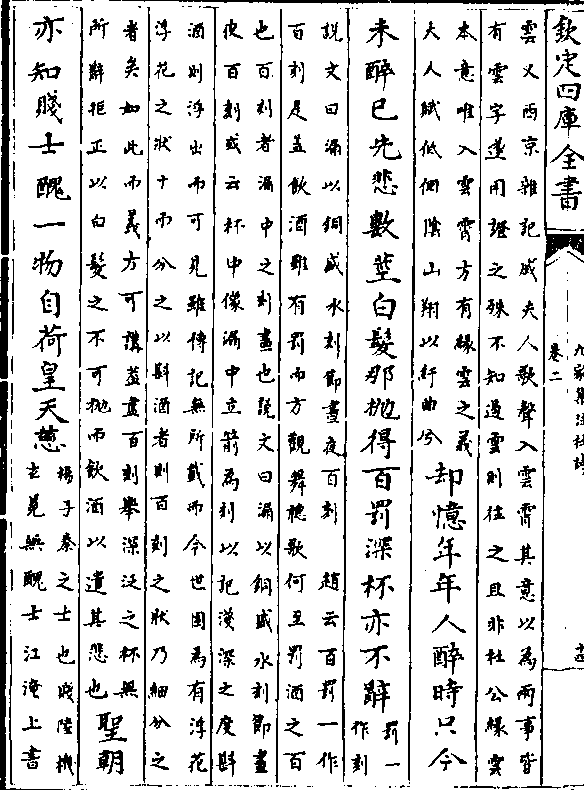 欽定四庫全書
九家集注杜詩
卷二
雲又西京雜記戚夫人歌聲入雲霄其意以為兩事皆
有雲字遂用證之殊不知遏雲則住之且非杜公緣雲
本意唯入雲霄方有緣雲之義
夫人賦低徊陰山翔以紆曲兮
却憶年年人醉時只今
未醉已先悲數莖白髮那抛得百罰深杯亦不辭
罰一
作刻
說文曰漏以銅盛水刻節晝夜百刻 趙云百罰一作
百刻是盖飲酒雖有罰而方觀舞聽歌何至罰酒之百
也百刻者漏中之刻畫也說文曰漏以銅盛水刻節畫
使百刻或云杯中像漏中立箭為刻以記淺深之度斟
酒則浮出而可見雖傳記無所載而今世固為有浮花
浮花之狀十而分之以斟酒者則百刻之狀乃細分之
者矣如此而義方可講盖盡百刻舉深泛之杯無
所辭拒正以白髮之不可抛而飲酒以遣其悲也
聖朝
亦知賤士醜一物自荷皇天慈
楊子秦之士也賤陸機
玄冕無醜士江淹上書